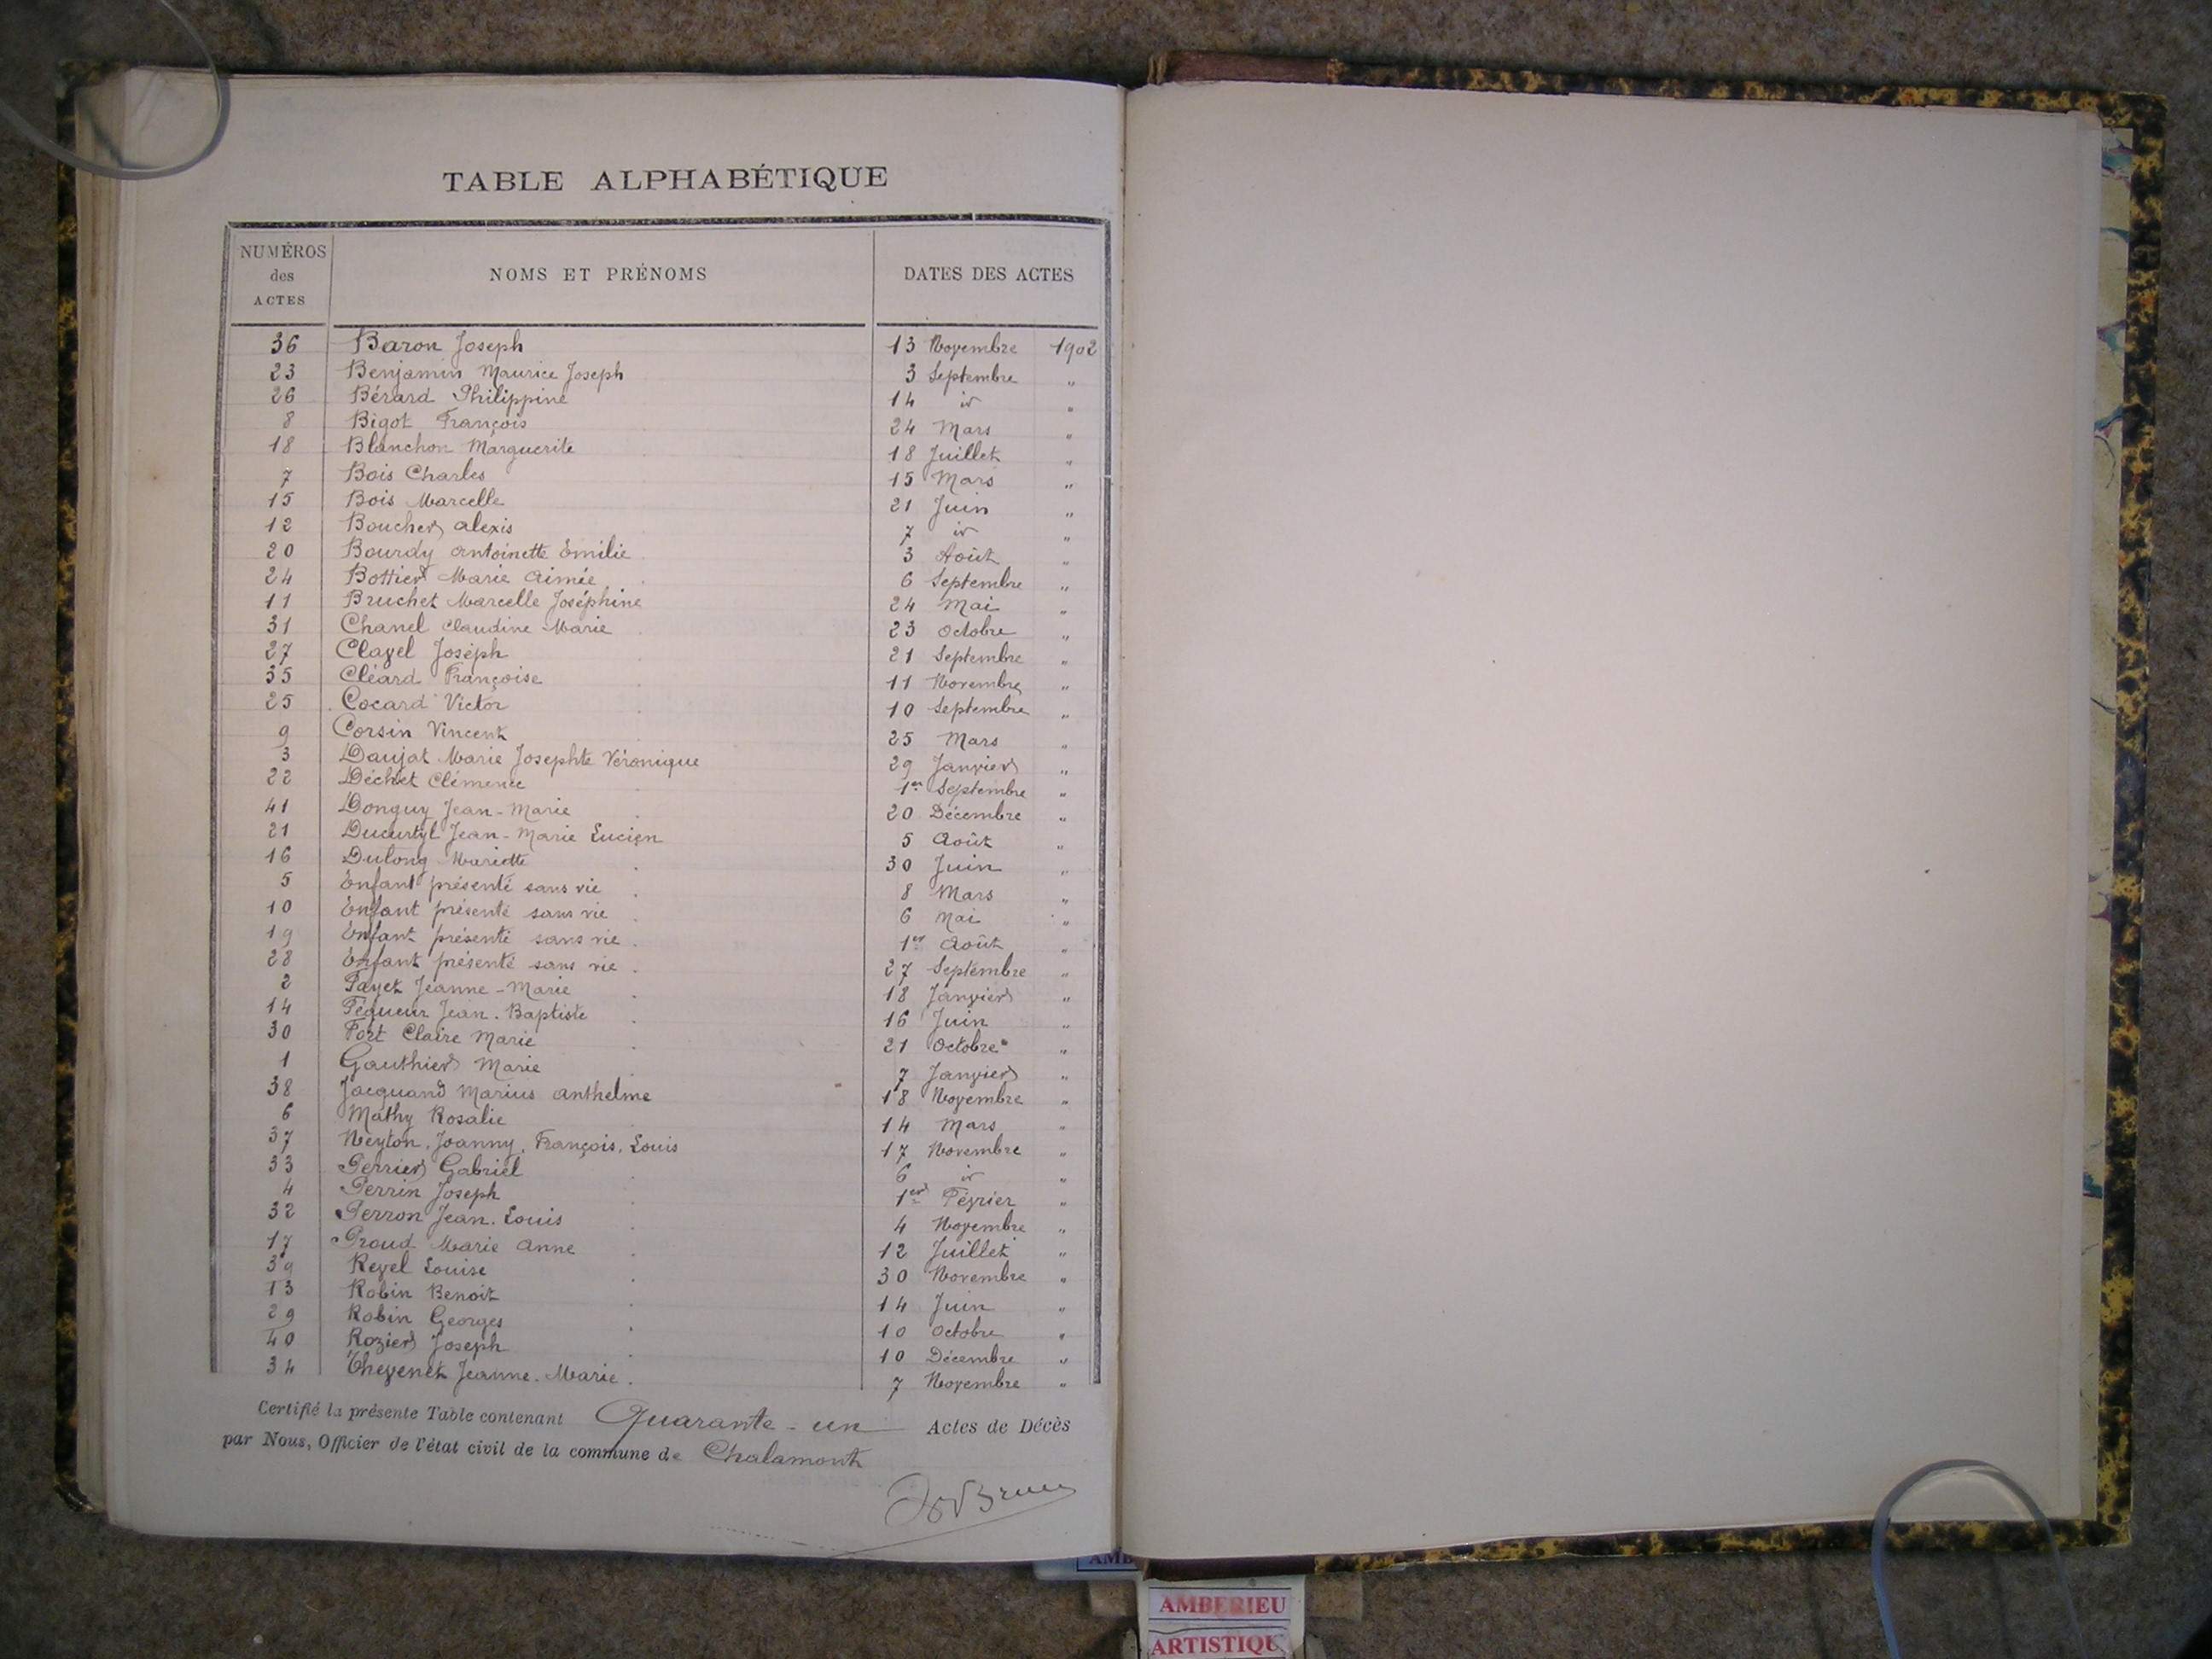 TABLE ALPHABÉTIQUE
NUMÉROS des ACTES NOMS ET PRÉNOMS DATES DES ACTES
36 Baron Joseph 13 Novembre 1902
23 Benjamin Maurice Joseph 3 Septembre "
26 Bérard Philippine 14 id "
8 Bigot François 24 Mars "
18 Blanchon Marguerite 18 Juillet "
7 Bois Charles 15 Mars "
15 Bois Marcelle 21 Juin "
12 Boucher Alexis 7 id "
20 Bourdy Antoinette Emilie 3 Août "
24 Bottier Marie Aimée 6 Septembre "
11 Bruchet Marcelle Joséphine 24 Mai "
31 Chanel Claudine Marie 23 Octobre "
27 Clavel Joseph 21 Septembre "
35 Cléard Françoise 11 Novembre "
25 Cocard Victor 10 Septembre "
9 Corsin Vincent 25 Mars "
3 Daujat Marie Josephte Véronique 29 Janvier "
22 Déchet Clémence 1er Septembre "
41 Donguy Jean-Marie 20 Décembre "
21 Ducurtyl Jean-Marie Lucien 5 Août "
16 Dulong Mariette 30 Juin "
5 Enfant présenté sans vie 8 Mars "
10 Enfant présenté sans vie 6 Mai "
19 Enfant présenté sans vie 1er Août "
28 Enfant présenté sans vie 27 Septembre "
2 Fayet Jeanne-Marie 18 Janvier "
14 Féqueur Jean-Baptiste 16 Juin "
30 Fort Claire Marie 21 Octobre "
1 Gauthier Marie 7 Janvier "
38 Jacquand Marius Anthelme 18 Novembre "
6 Mathy Rosalie 14 Mars "
37 Neyton, Joanny, François, Louis 17 Novembre "
33 Perrier Gabriel 6 id "
4 Perrin Joseph 1er Février "
32 Perron Jean-Louis 4 Novembre "
17 Proud Marie Anne 12 Juillet "
39 Revel Louise 30 Novembre "
13 Robin Benoit 14 Juin "
29 Robin Georges 10 Octobre "
40 Rozier Joseph 10 Décembre "
34 Thevenet Jeanne-Marie 7 Novembre "
Certifié la présente Table contenant Quarante-un Actes de Décès
par Nous, Officier de l'état civil de la commune de Chalamont
AMBERIEU
ARTISTIQU